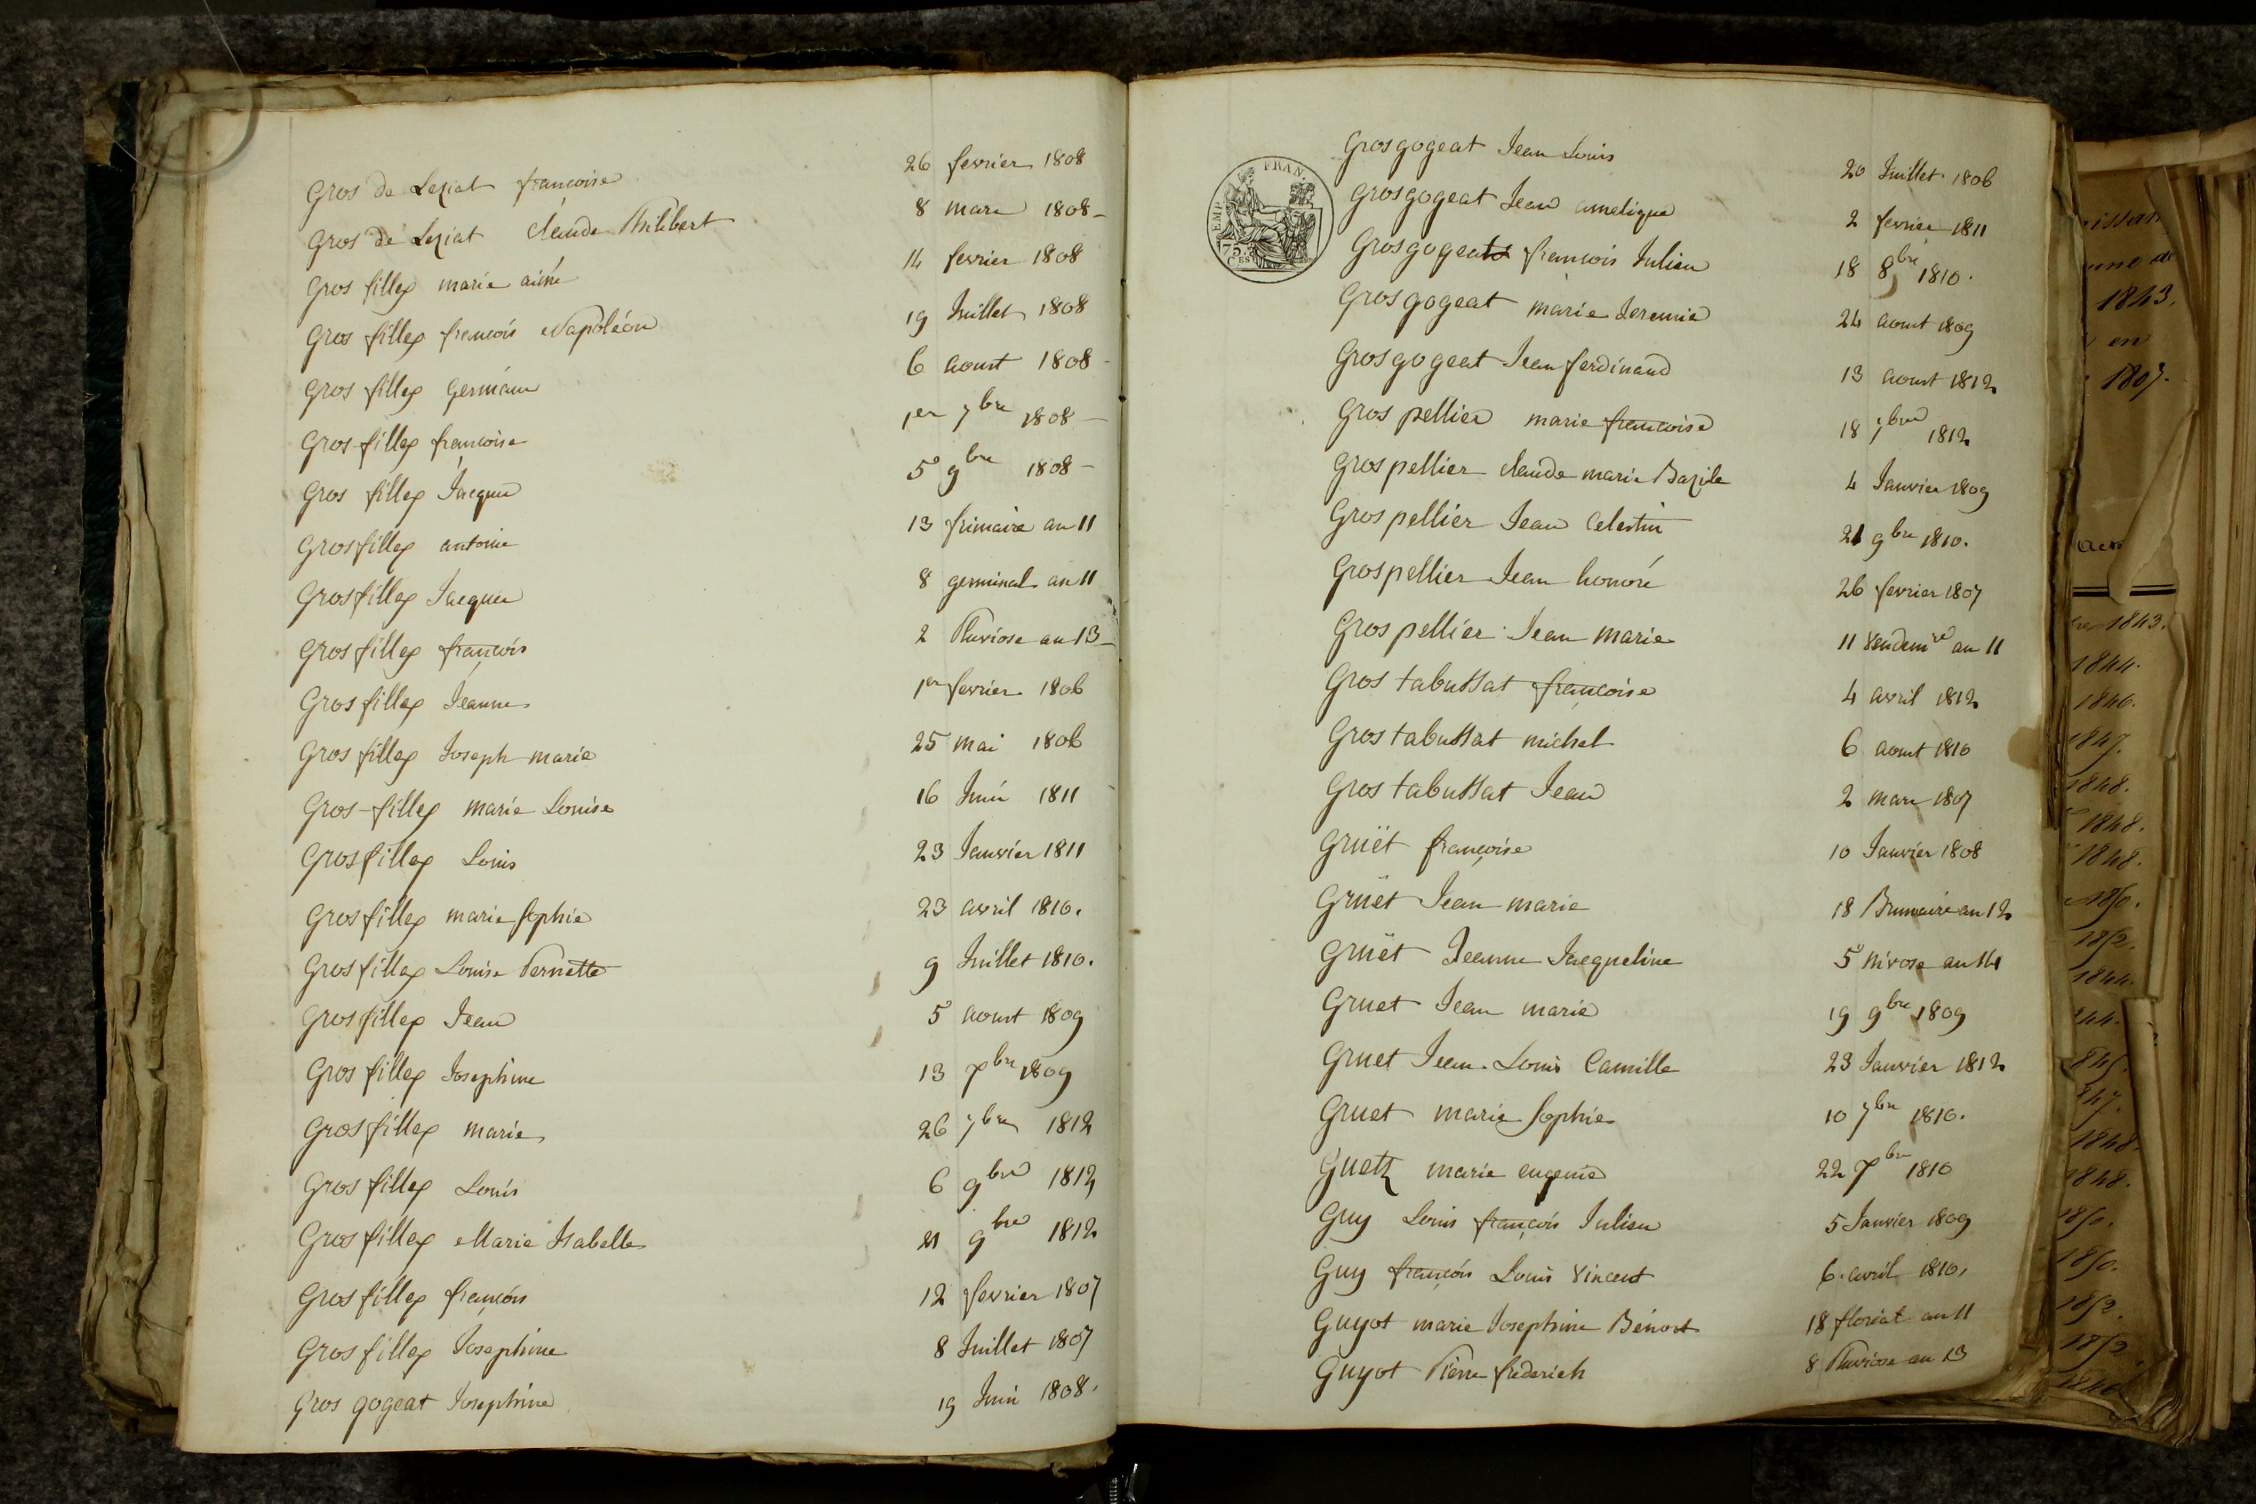 Gros de Leziat françoise 26 fevrier 1808
Gros de Leziat claude Philibert 8 mars 1808
Gros filley marie aimé 14 fevrier 1808
Gros filley françois Napoléon 19 Juillet 1808
Gros filley Germain 6 aoust 1808
Gros filley françoise 1er 7bre 1808
Gros filley Jacques 5 9bre 1808
Grosfilley antoine 13 frimaire an 11
Grosfilley Jacques 8 germinal an 11
Grosfilley françois 2 Pluviose an 13
Gros filley Jeanne 1er fevrier 1806
Gros filley Joseph marie 25 mai 1806
Gros-filley marie Louise 16 Juin 1811
Grosfilley Louis 23 Janvier 1811
Grosfilley marie Sophie 23 avril 1810.
Grosfilley Louise Pernette 9 Juillet 1810.
Grosfilley Jean 5 aoust 1809
Gros filley Josephine 13 Xbre 1809
Grosfilley marie 26 7bre 1812
Grosfilley Louis 6 9bre 1812
Grosfilley Marie Isabelle 21 9bre 1812
Grosfilley françois 12 fevrier 1807
Grosfilley Josephine 8 Juillet 1807
Gros gogeat Josephine 19 Juin 1808.
FRAN.
EMP.
75
CES
Grosgogeat Jean Louis 20 Juillet 1806
Grosgogeat Jean amelique 2 fevrier 1811
Grosgogeat françois Julien 18 8bre 1810.
Grosgogeat marie Jeremie 24 aoust 1809
Grosgogeat Jean ferdinand 13 aoust 1812
Gros pellier marie françoise 18 7bre 1812
Grospellier claude marie Bazile 4 Janvier 1809
Grospellier Jean Celestin 21 9bre 1810.
Grospellier Jean honoré 26 fevrier 1807
Grospellier Jean marie 11 Vendemre an 11
Gros tabussat françoise 4 avril 1812
Gros tabussat michel 6 aoust 1810
Gros tabussat Jean 2 mars 1807
Gruët françoise 10 Janvier 1808
Gruët Jean marie 18 Brumaire an 12
Gruët Jeanne Jacqueline 5 nivose an 14
Gruet Jean marie 19 9bre 1809
Gruet Jean Louis Camille 23 Janvier 1812
Gruet marie Sophie 10 7bre 1810.
Guetz marie eugenie 22 Xbre 1810
Guy Louis françois Julien 5 Janvier 1809
Guy françois Louis Vincent 6 avril 1810.
Guyot marie Josephine Benoit 18 floréal an 11
Guyot Pierre frederich 8 Pluviose an 13
1843.
en
1807.
1843.
1844.
1846.
1847.
1848.
1848.
1848.
1844.
1848.
1848.